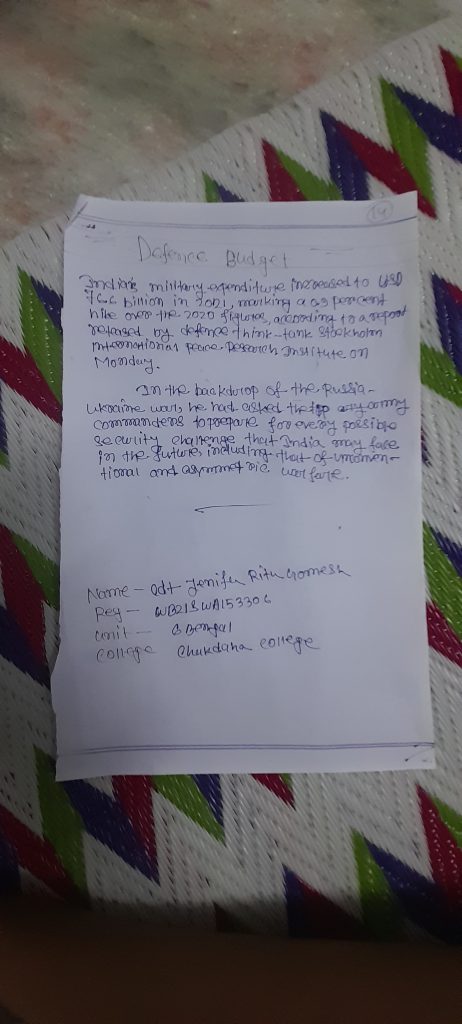 14
Defence Budget
India's military expenditure increased to USD
76.6 billion in 2021, marking a 0.9 percent
hike over the 2020 figures, according to a report
released by defence think-tank Stockholm
international peace Research Institute on
Monday.
In the backdrop of the Russia-
Ukraine war, he had asked the top army
commanders to prepare for every possible
security challenge that India may face
in the future, including that of
tional and asymmetric warfare.
Name - cdt Jenifer Ritu Gomesh
Reg - WB21SWA153306
unit - 3 Bengal
college Chakdaha college